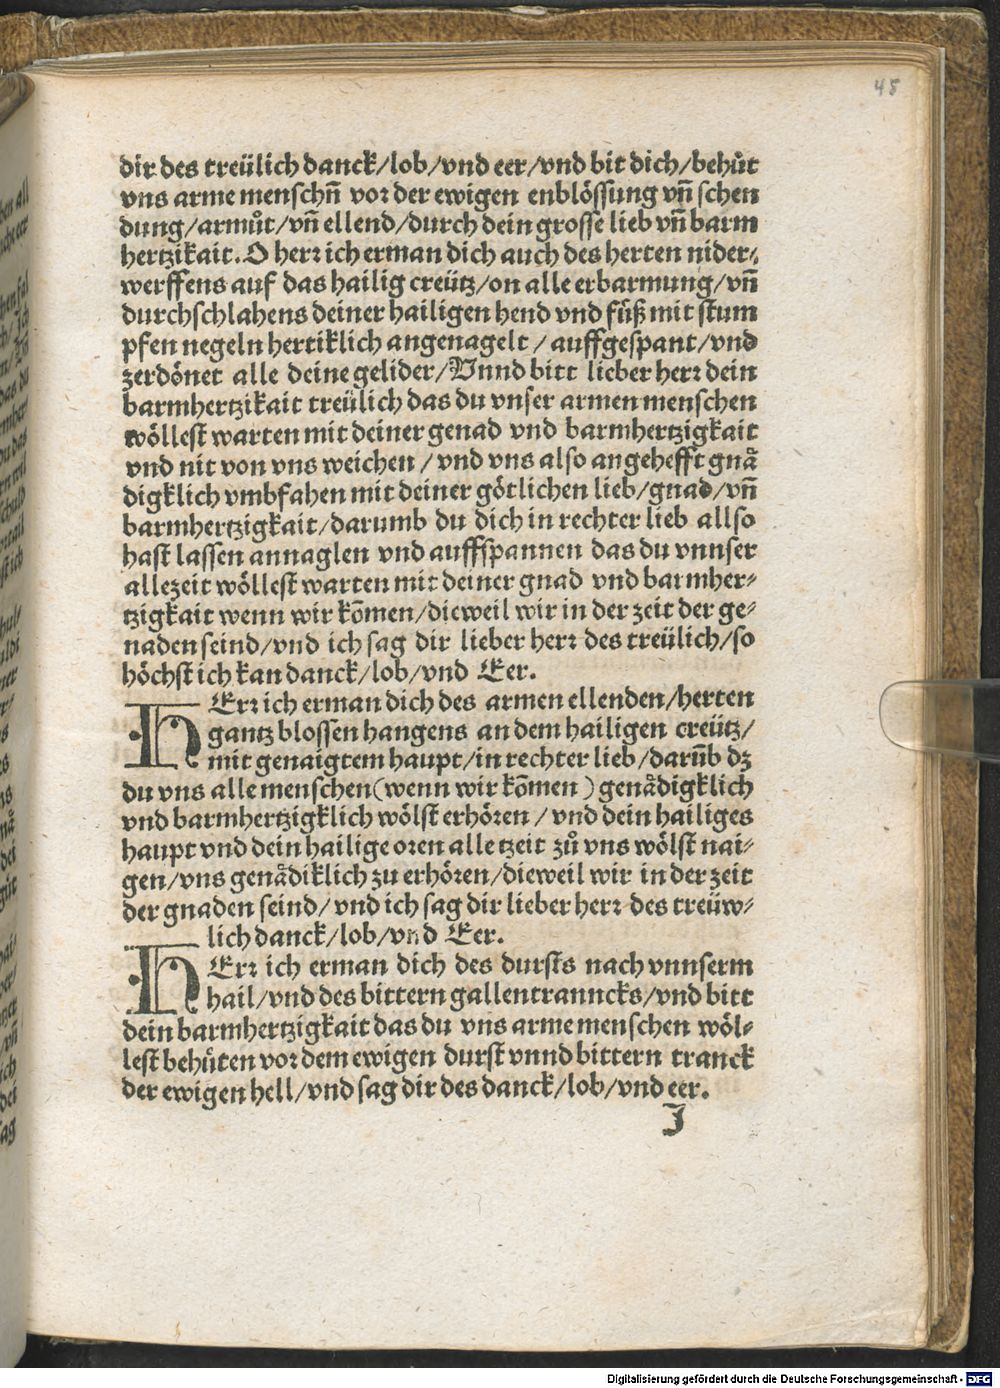 45
dir des treülich danck/lob/vnd eer/vnd bit dich/behuͤt
vns arme menschñ vor der ewigen enblössung vñ schen
dung/armuͦt/vñ ellend/durch dein grosse lieb vñ barm
hertzikait. O herr ich erman dich auch des herten nider⸗
werffens auf das hailig creütz/on alle erbarmung/vñ
durchschlahens deiner hailigen hend vnd fuͤß mit stum
pfen negeln hertiklich angenagelt / auffgespant/vnd
zerdönet alle deine gelider/Vnnd bitt lieber herr dein
barmhertzikait treülich das du vnser armen menschen
wöllest warten mit deiner genad vnd barmhertzigkait
vnd nit von vns weichen / vnd vns also angehefft gnaͤ
digklich vmbfahen mit deiner götlichen lieb/gnad/vñ
barmhertzigkait/darumb du dich in rechter lieb allso
hast lassen annaglen vnd auffspannen das du vnnser
allezeit wöllest warten mit deiner gnad vnd barmher⸗
tzigkait wenn wir kōmen/dieweil wir in der zeit der ge⸗
naden seind/vnd ich sag dir lieber herr des treülich/so
höchst ich kan danck/lob/vnd Eer.
HErr ich erman dich des armen ellenden/herten
gantz blossen hangens an dem hailigen creütz/
mit genaigtem haupt/in rechter lieb/darūb dz
du vns alle menschen(wenn wir kōmen ) genaͤdigklich
vnd barmhertzigklich wölst erhören / vnd dein hailiges
haupt vnd dein hailige oren alle tzeit zuͦ vns wölst nai⸗
gen/vns genaͤdiklich zu erhören/dieweil wir in der zeit
der gnaden seind/ vnd ich sag dir lieber herr des treüw⸗
lich danck/lob/vnd Eer.
HErr ich erman dich des dursts nach vnnserm
hail/vnd des bittern gallentranncks/vnd bitt
dein barmhertzigkait das du vns arme menschen wöl⸗
lest behuͤten vor dem ewigen durst vnnd bittern tranck
der ewigen hell/vnd sag dir des danck/lob/vnd eer.
J
Digitalisierung gefördert durch die Deutsche Forschungsgemeinschaft - DFG